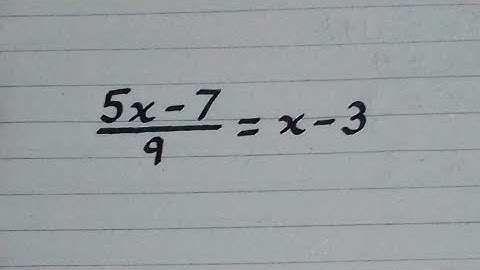 5x - 7
9
= x - 3